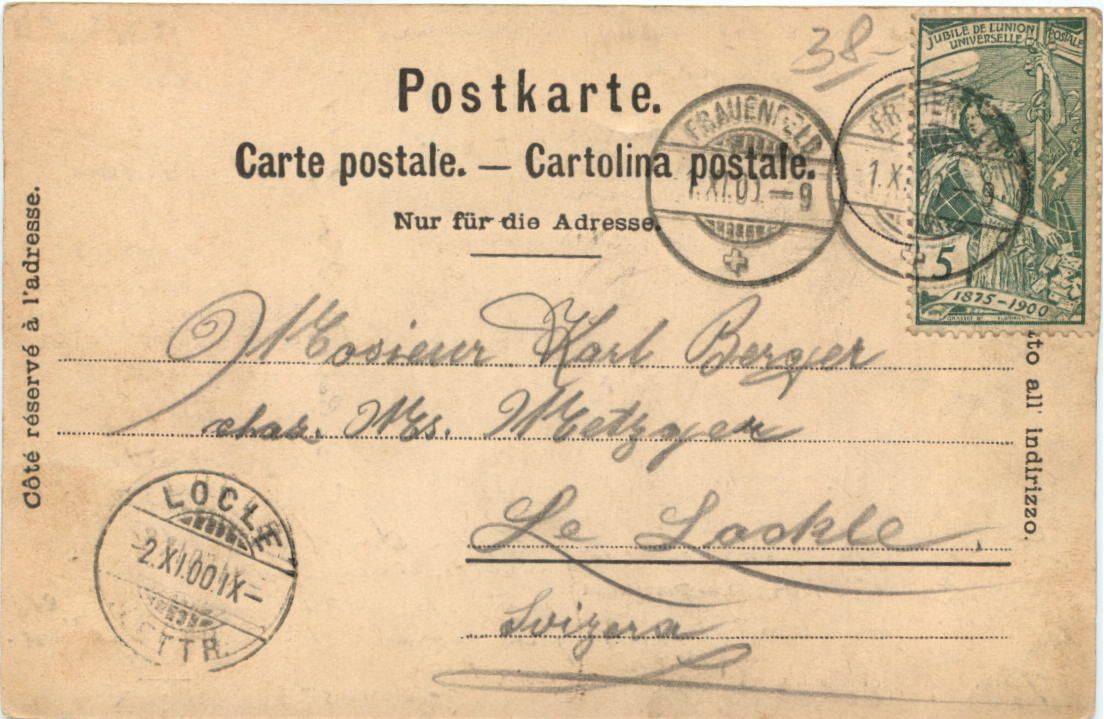 38.-
JUBILÉ DE L'UNION
POSTALE
UNIVERSELLE
Postkarte.
Carte postale. — Cartolina postale.
Nur für die Adresse.
FRAUENFELD
1.XI.00.—9
FRAUENFELD
1.X 9
5
1875-1900
Côté réservé à l'adresse.
ato all' indirizzo.
Mosieur Karl Berger
chez. Ms. Metzger
Le Lockle.
Svizera
LOCLE
2.XI.00.IX—
LETTR.